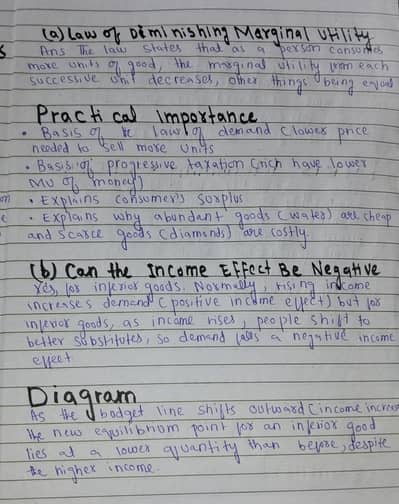 (a) Law of Diminishing Marginal Utility
Ans The law states that as a person consumes
more units of good, the marginal utility from each
successive unit decreases, other things being equal
Practical importance
• Basis of the law of demand (lower price
needed to sell more units
• Basis of progressive taxation (rich have lower
MU of money)
• Explains consumer's surplus
• Explains why abundant goods (water) are cheap
and scarce goods (diamonds) are costly.
(b) Can the Income Effect Be Negative
Yes, for inferior goods. Normally, rising income
increases demand (positive income effect) but for
inferior goods, as income rises, people shift to
better substitutes, so demand falls a negative income
effect
Diagram
As the budget line shifts outward (income increase
the new equilibrium point for an inferior good
lies at a lower quantity than before, despite
the higher income.